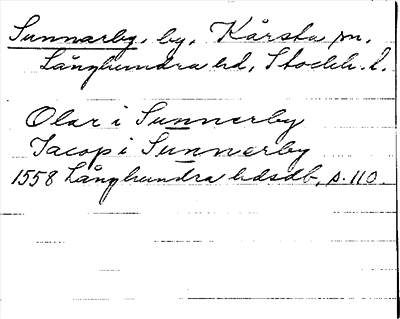 Sunnarby, by, Kårsta sn.
Långhundra hd, Stockh. l.
Olar i Sunnerby
Jacop i Sunnerby
1558 Långhundra hdsdb, s. 110.